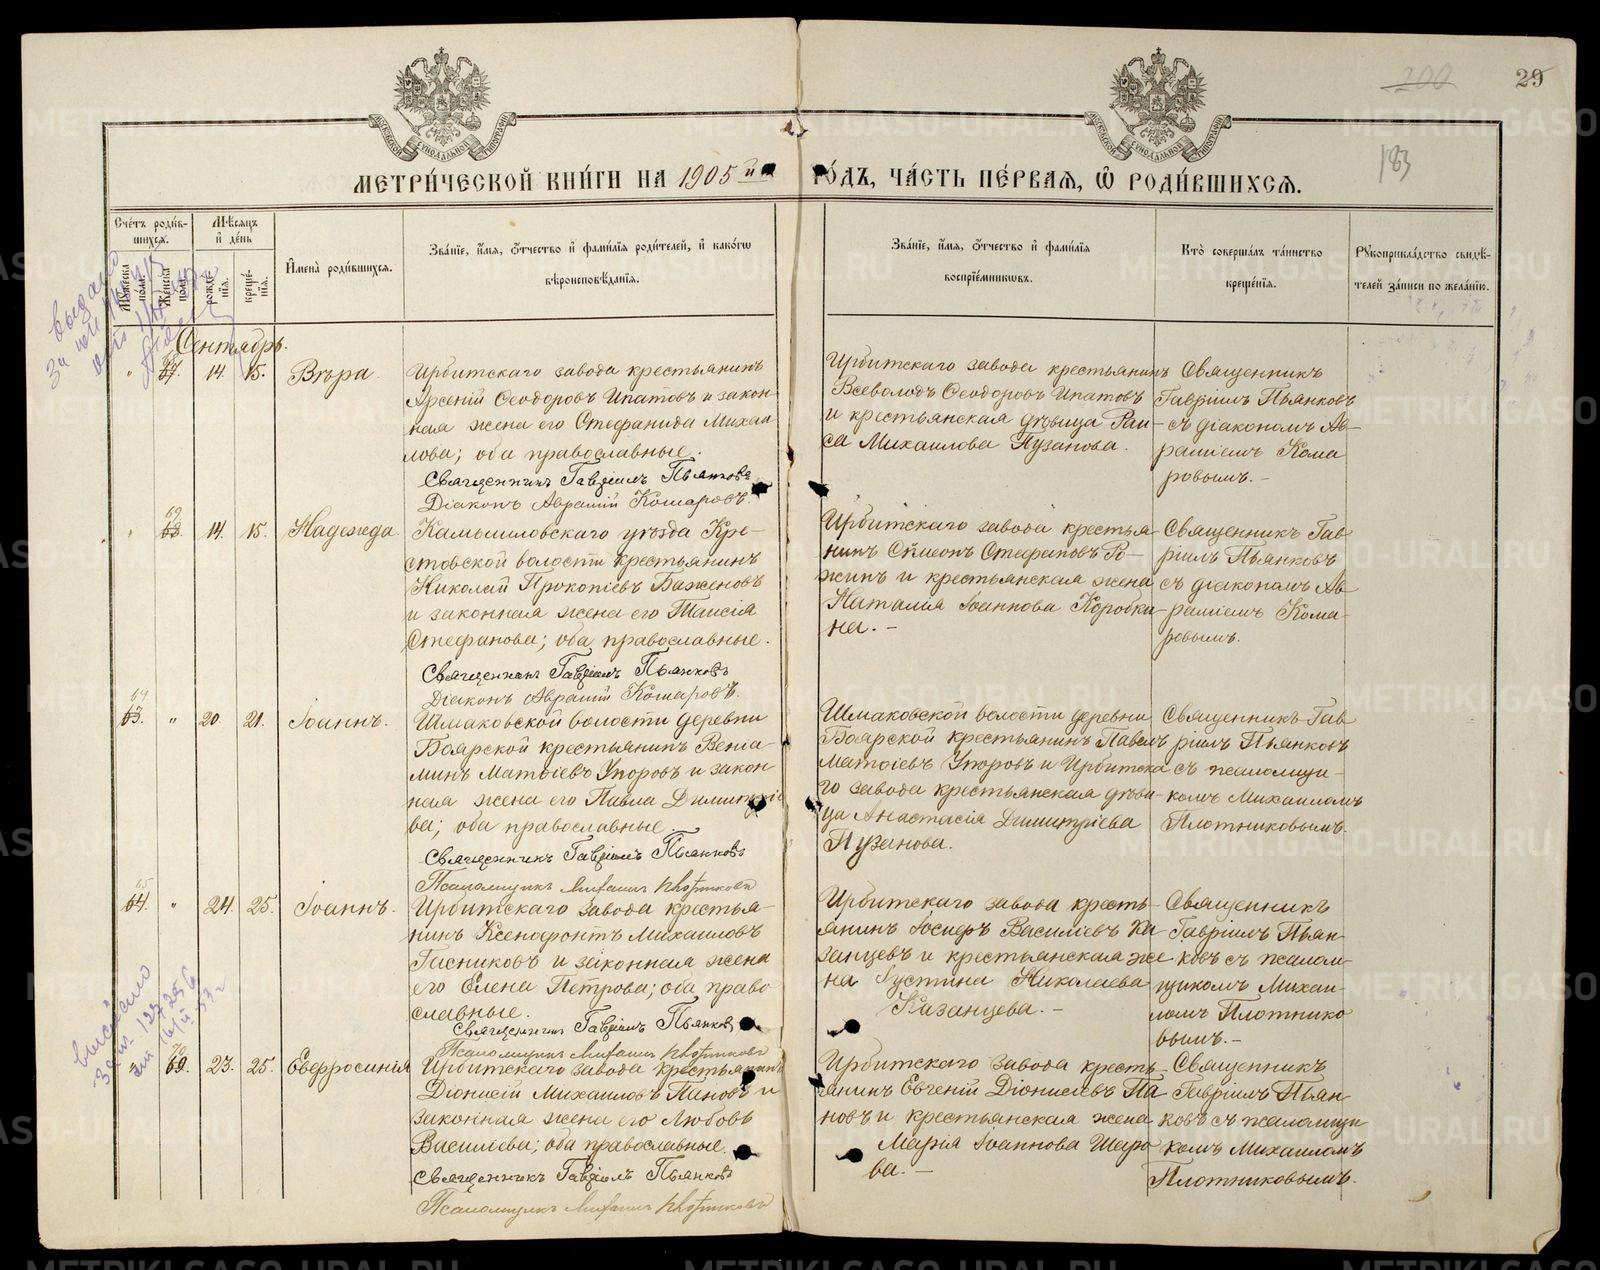 200
29
183
МЕТРИ́ЧЕСКОЙ КНИ́ГИ НА 1905 й РО́ДЪ, ЧА́СТЬ ПЕ́РВАЯ, Ѡ РОДИ́ВШИХСЯ.
Сче́тъ роди́вшихся.
Му́жеска по́ла.
Же́нска по́ла.
Мѣ́сяцъ и де́нь
рожде́нія.
креще́нія.
И́мена̀ роди́вшихся.
Зва́ніе, и́мя, ѻ́тчество и фами́лія роди́телей, и како́гѡ
вѣроисповѣ́данія.
Зва́ніе, и́мя, ѻ́тчество и фами́лія
воспріе́мникѡвъ.
Кто̀ соверша́лъ та́инство
креще́нія.
Рꙋкоприкла́дство свидѣ́-
телей за́писи по жела́нію.
Сентябрь.
" 67. 14. 15. Вѣра
Ирбитскаго завода крестьянинъ
Арсеній Ѳеодоровъ Ипатовъ и закон-
ная жена его Стефанида Михаи
лова; оба православные.
Священникъ Гавріилъ Пьянковъ
Діаконъ Аврамій Комаровъ.
Ирбитскаго завода крестьянинъ
Всеволодъ Ѳеодоровъ Ипатовъ
и крестьянская дѣвица Раи-
са Михаилова Пузанова.
Священникъ
Гавріилъ Пьянковъ
съ діакономъ Ав-
раміемъ Кома
ровымъ. -
" 69 68. 14. 15. Надежда.
Камышловскаго уѣзда Кре-
стовской волости крестьянинъ
Николай Прокопіевъ Баженовъ
и законная жена его Таисія
Стефанова; оба православные.
Священникъ Гавріилъ Пьянковъ
Діаконъ Аврамій Комаровъ.
Ирбитскаго завода крестья-
нинъ Симеонъ Стефановъ Ро-
жинъ и крестьянская жена
Наталья Іоаннова Коробки-
на. -
Священникъ Гав
ріилъ Пьянковъ
съ діакономъ Ав-
раміемъ Кома-
ровымъ.
64 63. " 20. 21. Іоаннъ.
Шмаковской волости деревни
Боярской крестьянинъ Веніа-
минъ Матѳіевъ Упоровъ и закон
ная жена его Павла Димитріе
ва; оба православные
Священникъ Гавріилъ Пьянковъ
Псаломщикъ Михаилъ Плотниковъ
Шмаковской волости деревни
Боярской крестьянинъ Павелъ
Матѳіевъ Упоровъ и Ирбитска
го завода крестьянская дѣви-
ца Анастасія Димитріева
Пузанова.
Священникъ Гав
ріилъ Пьянковъ
съ псаломщи-
комъ Михаиломъ
Плотниковымъ.
65 64. " 24. 25. Іоаннъ.
Ирбитскаго завода крестья-
нинъ Ксенофонтъ Михаиловъ
Гасниковъ и законная жена
его Елена Петрова; оба право
славные.
Священникъ Гавріилъ Пьянковъ
Псаломщикъ Михаилъ Плотниковъ
Ирбитскаго завода кресть-
янинъ Іосифъ Василіевъ Ка
занцевъ и крестьянская же
на Іустина Николаева
Казанцева. -
Священникъ
Гавріилъ Пьян-
ковъ съ псалом-
щикомъ Михаи-
ломъ Плотнико
вымъ. -
" 70 69. 23. 25. Евфросинія
Ирбитскаго завода крестьянинъ
Діонисій Михаиловъ Пановъ и
законная жена его Любовь
Василіева; оба православные.
Священникъ Гавріилъ Пьянковъ
Псаломщикъ Михаилъ Плотниковъ
Ирбитскаго завода кресть-
янинъ Евгеній Діонисіевъ Па
новъ и крестьянская жена
Марія Іоаннова Шаро
ва. -
Священникъ
Гавріилъ Пьян-
ковъ съ псаломщи
комъ Михаиломъ
Плотниковымъ.